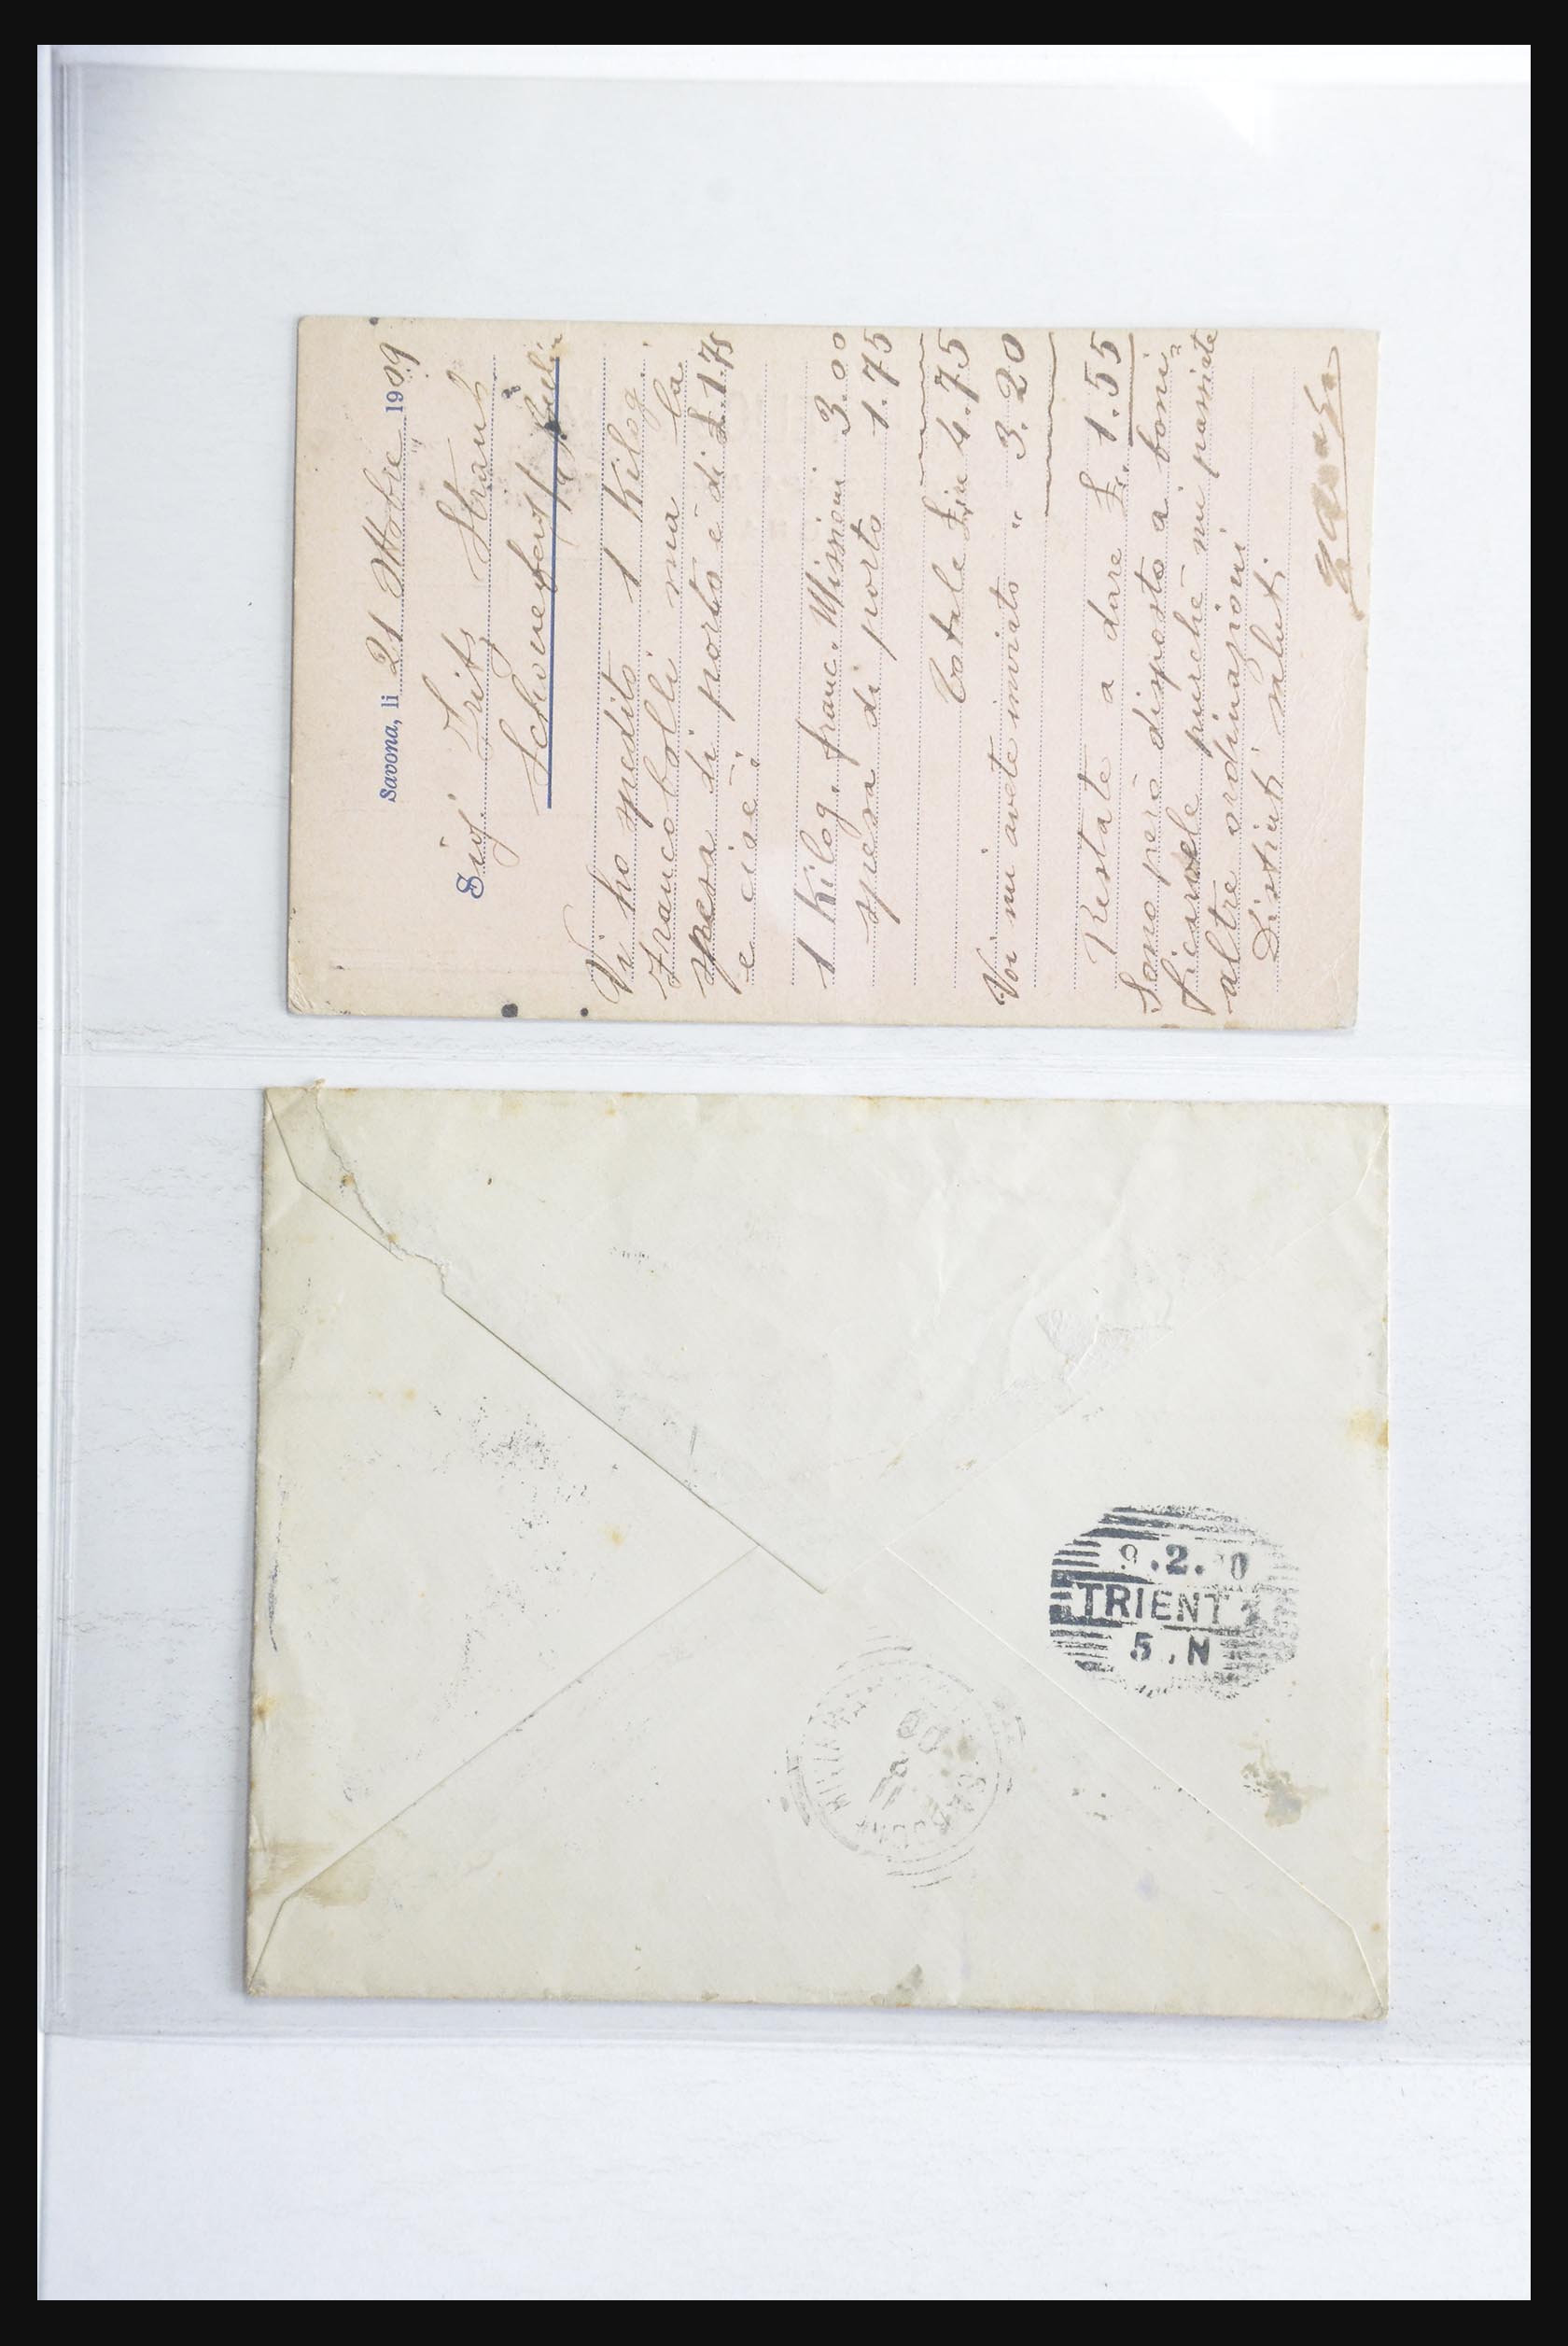 Savona, li 21 Ottobre 1909
Sig. Fritz Strauch
Vi ho spedito 1 Kilog.
Francobolli ma la
spesa di porto è di £. 1.75
e cioè:
1 Kilog. franc. Missioni 3.00
spesa di porto 1.75
Totale Lire 4.75
Voi mi avete inviato " 3.20
Restate a dare £. 1.55
Sono però disposto a boni=
ficarvele purchè mi passiate
altre ordinazioni
Distinti saluti
TRIENT
5.N